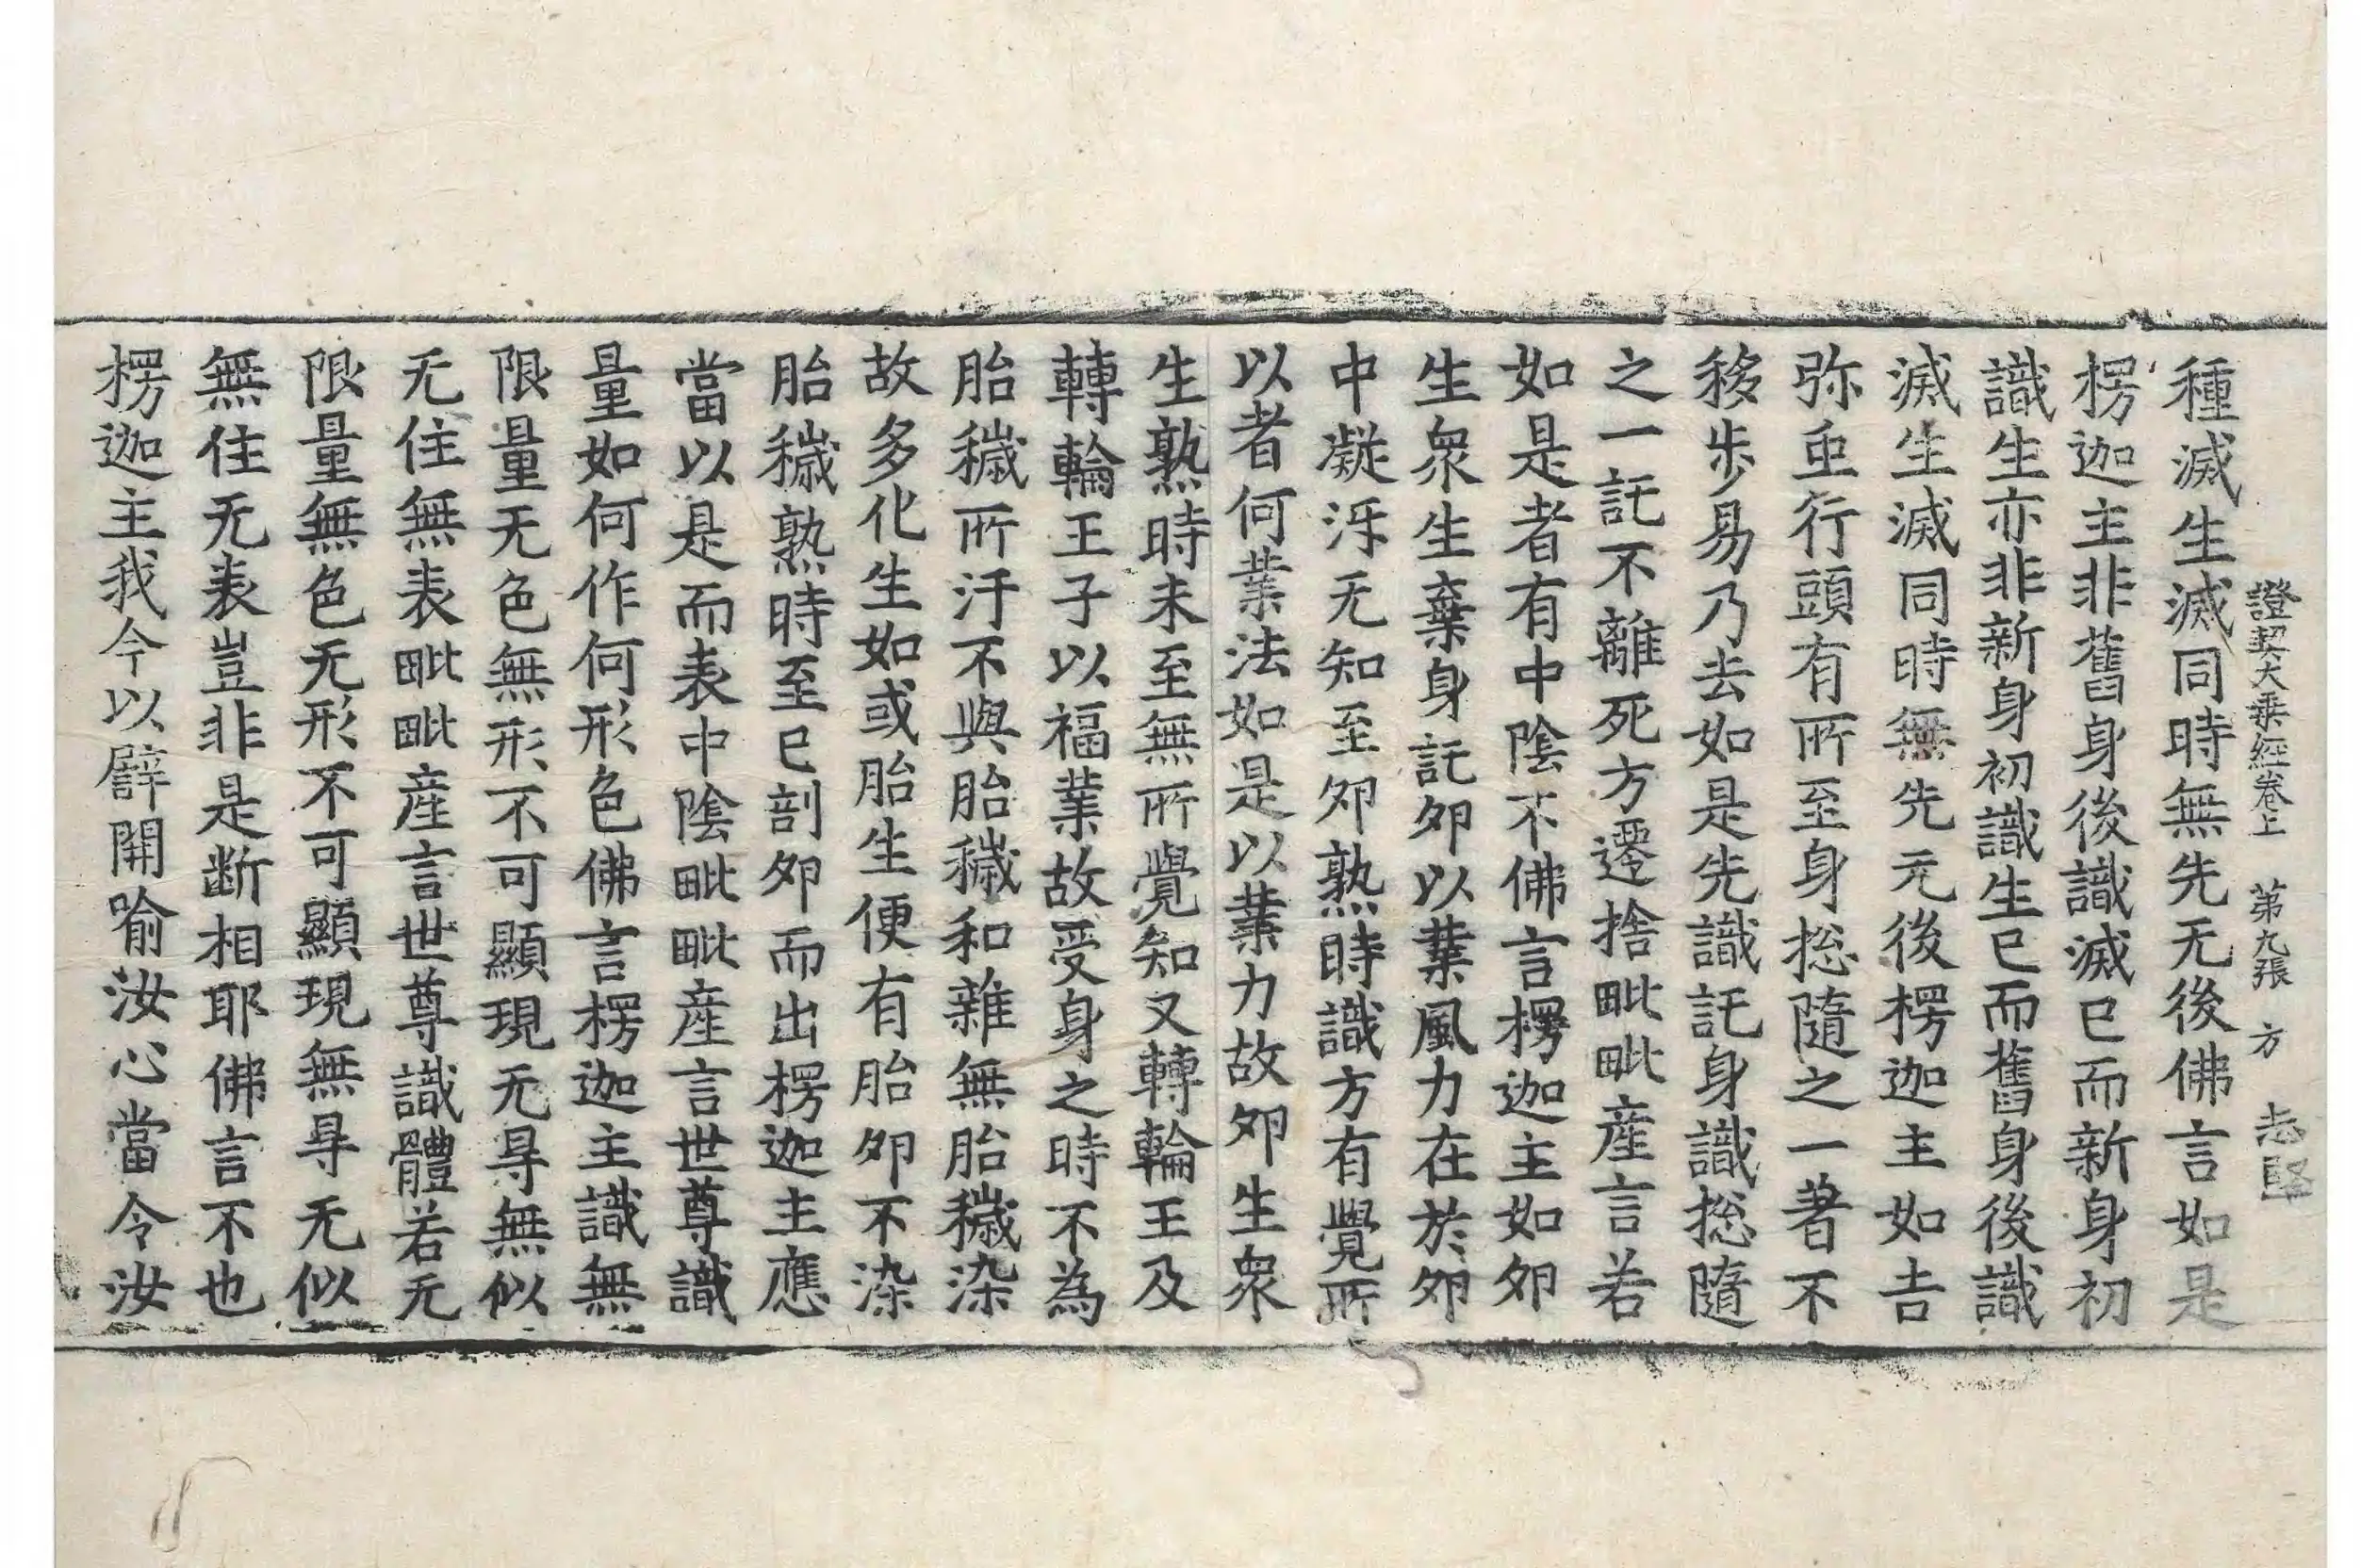 證契大乗經卷上　第九張　方　志堅
種滅生滅同時無先无後佛言如是
楞迦主非舊身後識滅已而新身初
識生亦非新身初識生已而舊身後識
滅生滅同時無先无後楞迦主如吉
弥䖝行頭有所至身揔隨之一著不
移步易乃去如是先識託身識揔隨
之一託不離死方遷捨毗毗産言若
如是者有中陰不佛言楞迦主如夘
生衆生棄身託夘以業風力在於夘
中凝浮无知至夘熟時識方有覺所
以者何業法如是以業力故夘生衆
生熟時未至無所覺知又轉輪王及
轉輪王子以福業故受身之時不為
胎穢所汙不與胎穢和雜無胎穢染
故多化生如或胎生便有胎夘不染
胎穢熟時至已剖夘而出楞迦主應
當以是而表中陰毗毗産言世尊識
量如何作何形色佛言楞迦主識無
限量无色無形不可顯現无㝵無似
无住無表毗毗産言世尊識體若无
限量無色无形不可顯現無㝵无似
無住无表豈非是断相耶佛言不也
楞迦主我今以譬開喻汝心當令汝